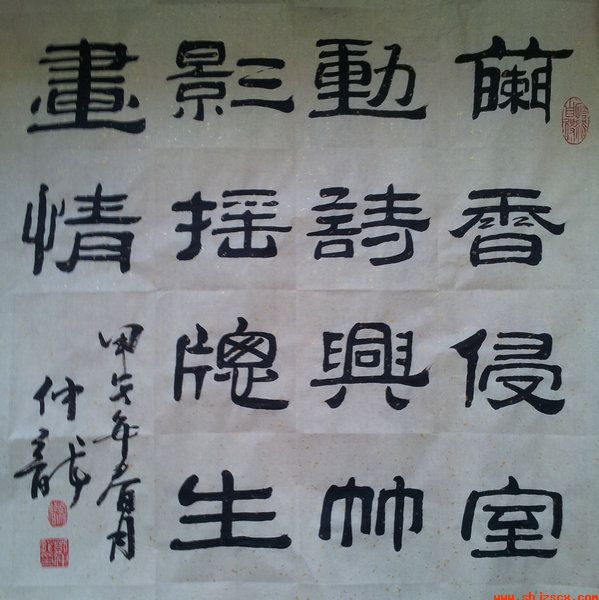 蘭香侵室
動詩興竹
影摇牕生
畫情
甲午年春月
仲龍
www.shjzscx.com